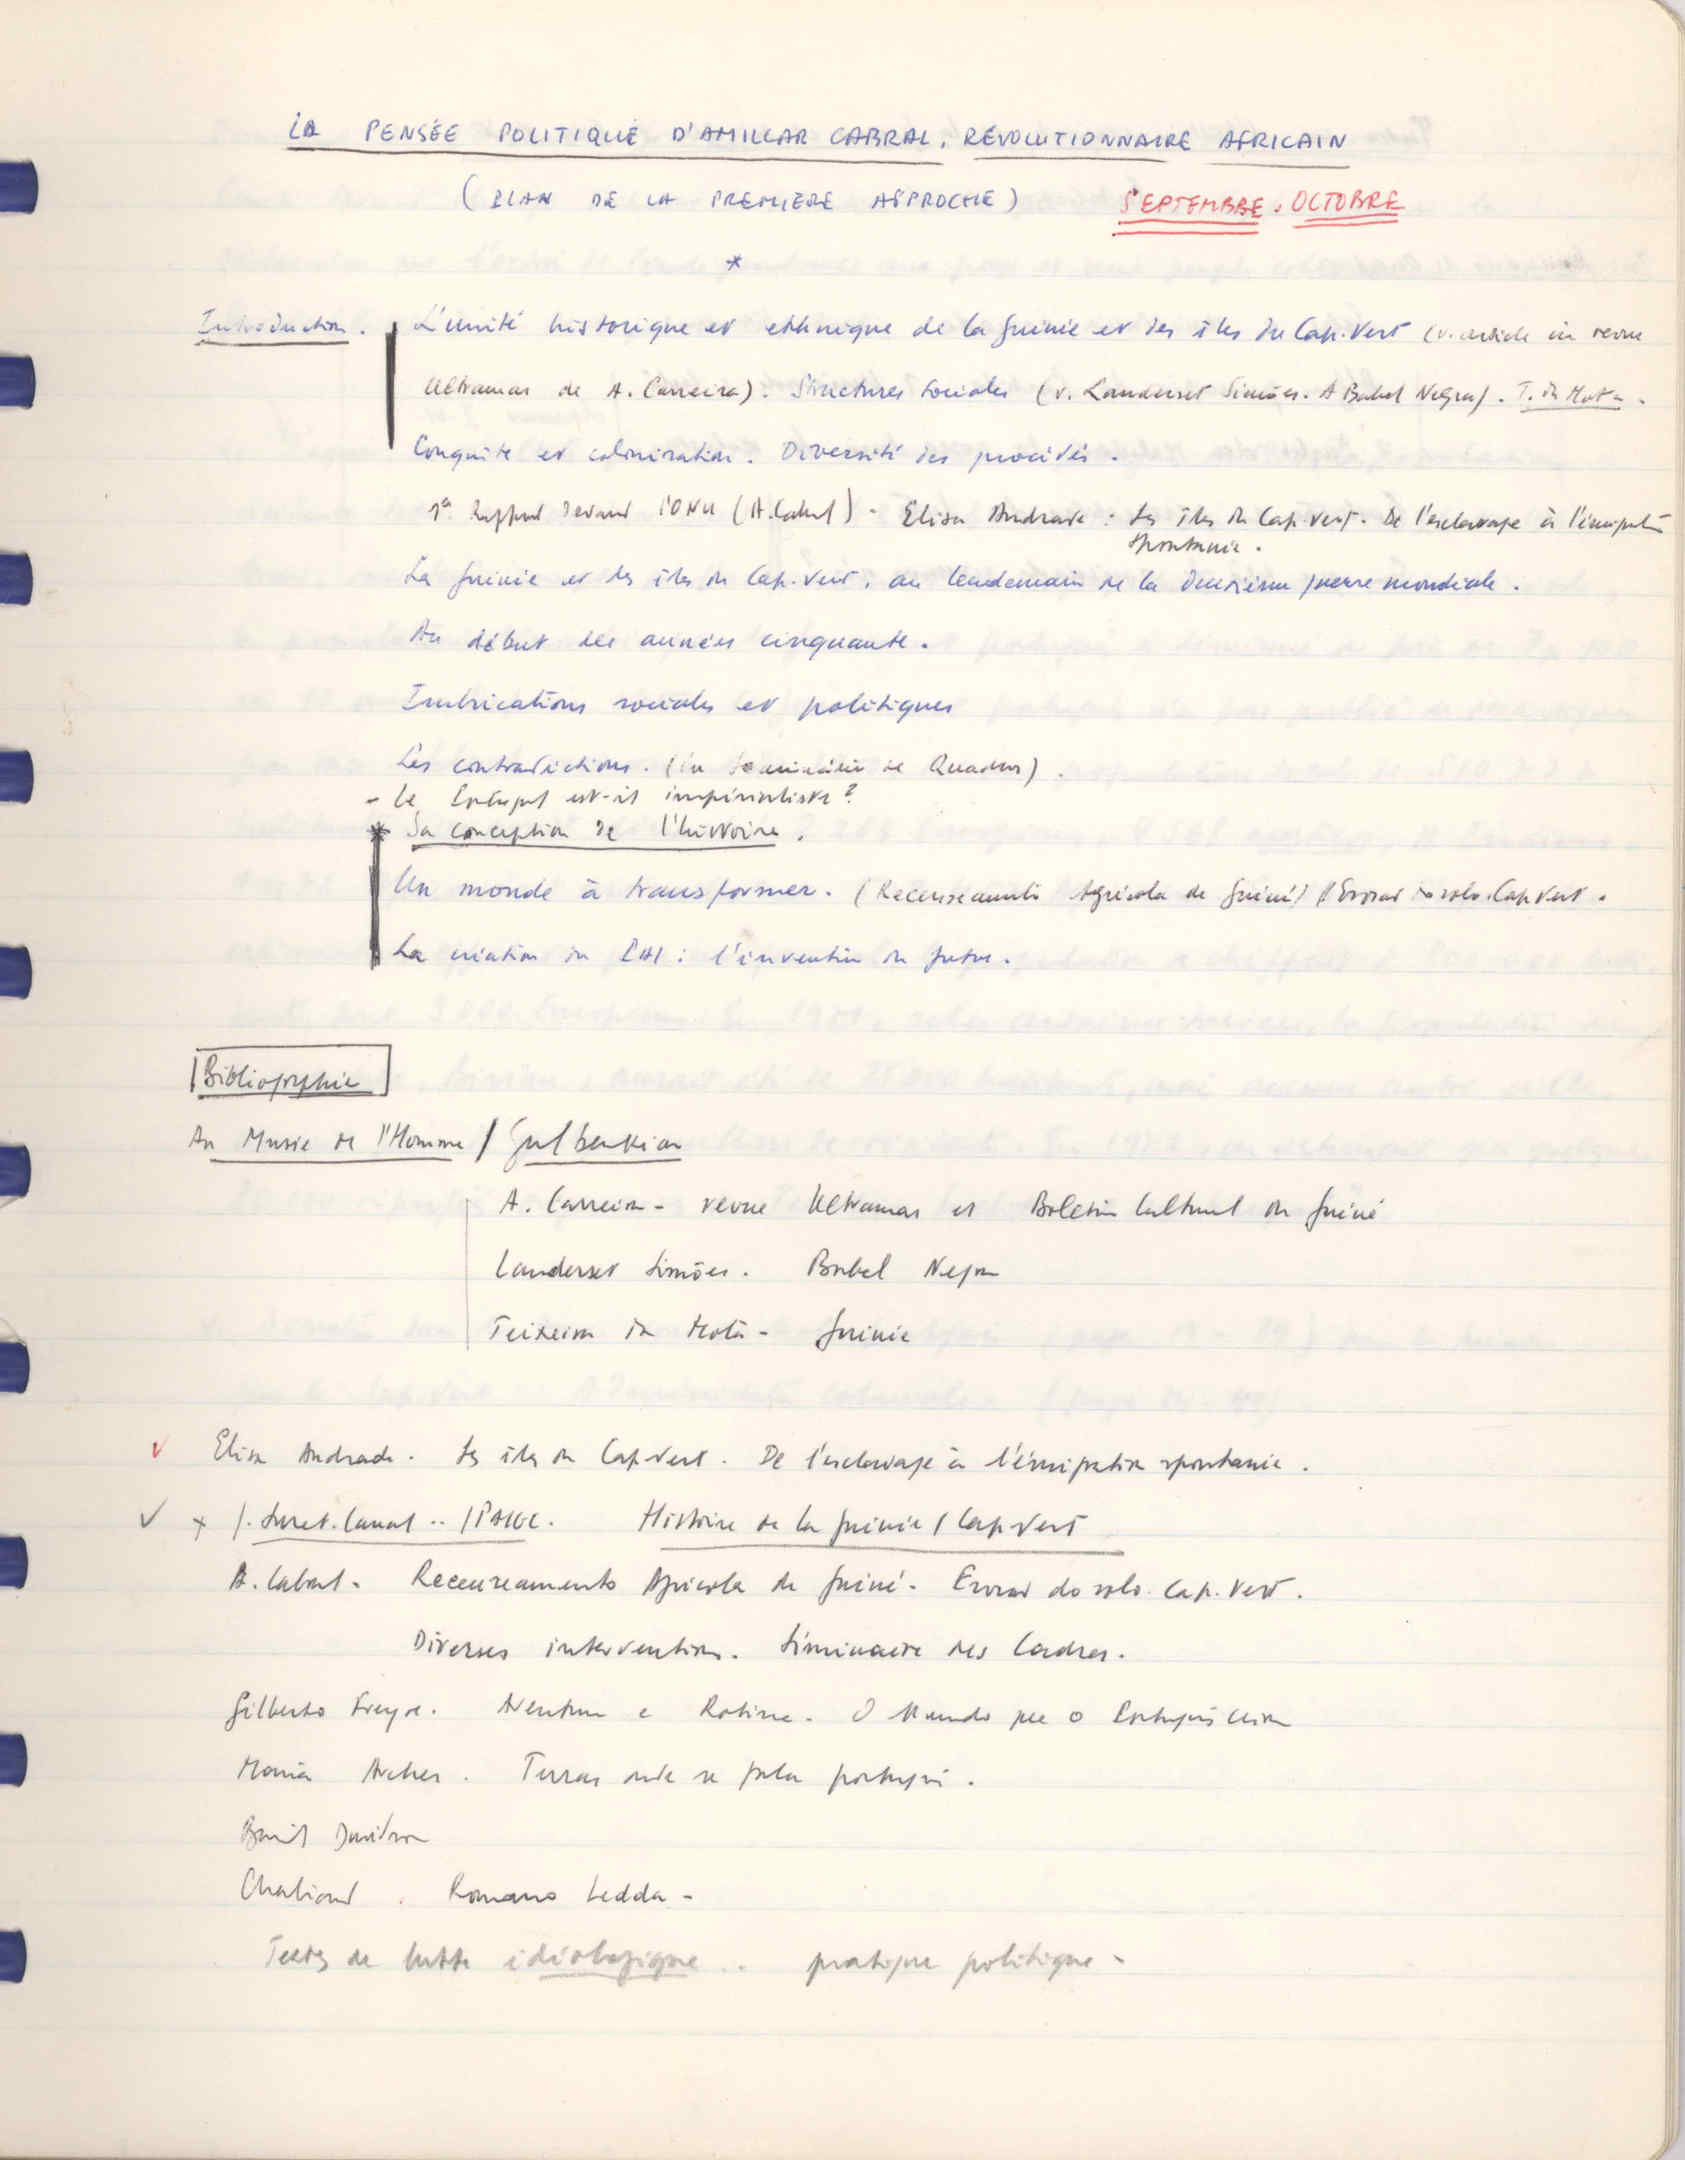 LA PENSÉE POLITIQUE D'AMILCAR CABRAL, RÉVOLUTIONNAIRE AFRICAIN
(PLAN DE LA PREMIÈRE APPROCHE) SEPTEMBRE. OCTOBRE
*
Introduction. L'unité historique et ethnique de la Guinée et des îles du Cap.Vert (v. article in revue
Ultramar de A. Carreira). Structures sociales (v. Landerset Simões. A Babel Negra). T. da Mota.
Conquête et colonisation. Diversité des procédés.
1er Rapport devant l'ONU (A. Cabral). Elisa Andrade : Les îles du Cap.Vert. De l'esclavage à l'émigration
spontanée.
La Guinée et les îles du Cap.Vert, au lendemain de la deuxième guerre mondiale.
Au début des années cinquante.
Imbrications sociales et politiques
Les contradictions. (in Seminário de Quadros).
- Le Portugal est-il impérialiste?
* Sa conception de l'histoire.
Un monde à transformer. (Recenseamento Agrícola de Guiné) / Erosão do solo.Cap Vert.
La création du PAI : l'invention du futur.
Bibliographie
Au Musée de l'Homme / Gulbenkian
A. Carreira - revue Ultramar et Boletim Cultural da Guiné
Landerset Simões. Babel Negra
Teixeira da Mota - Guinée
✓ Elisa Andrade. Les îles du Cap.Vert. De l'esclavage à l'émigration spontanée.
✓ x J. Suret.Canal .. /PAIGC. Histoire de la Guinée / Cap.Vert
A. Cabral. Recenseamento Agrícola da Guiné. Erosão do solo. Cap. Vert.
Diverses interventions. Séminaire des Cadres.
Gilberto Freyre. Aventura e Rotina. O Mundo que o Português criou
Maria Archer. Terras onde se fala português.
Basil Davidson
Chaliand. Romano Ledda -
Textes de lutte idéologique . pratique politique -